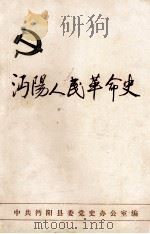 沔陽人民革命史
中共沔阳县委党史办公室编